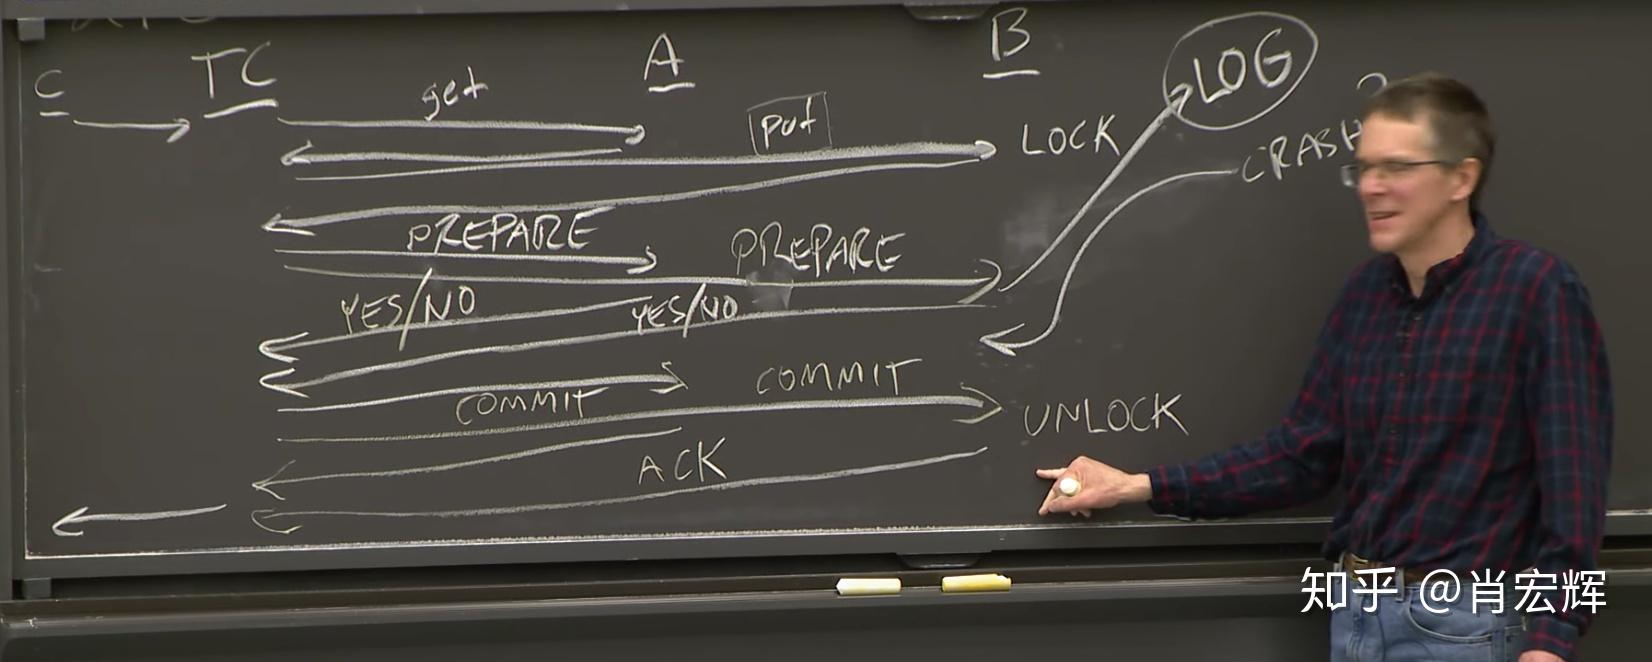 C
TC
get
A
put
B
LOCK
LOG
CRASH
PREPARE
PREPARE
YES/NO
YES/NO
COMMIT
COMMIT
UNLOCK
ACK
知乎 @肖宏辉